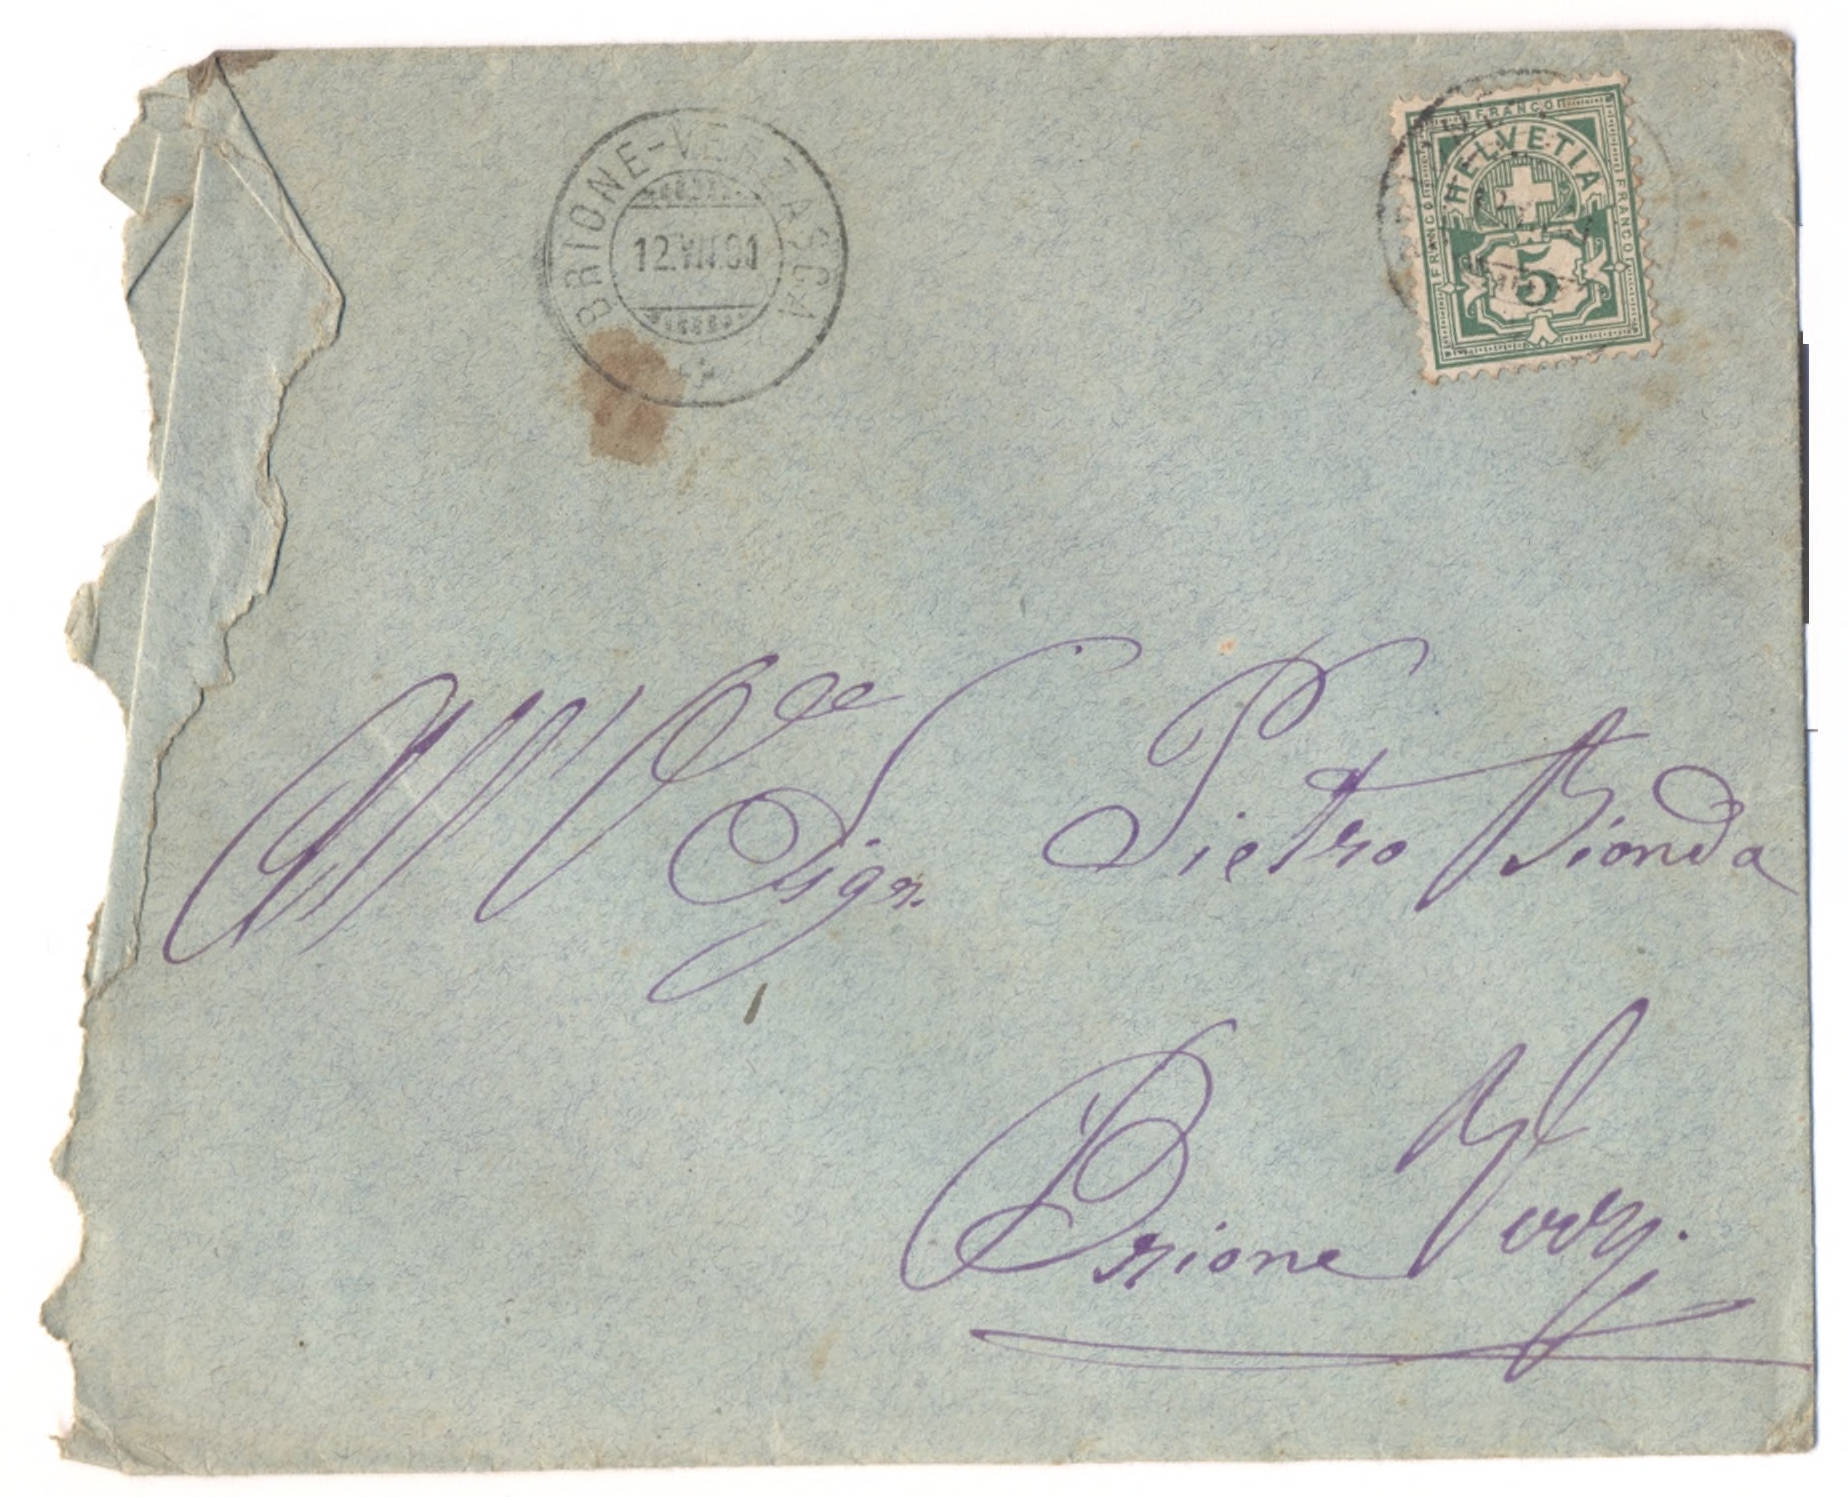 BRIONE-VERZASCA
FRANCO
HELVETIA
FRANCO
FRANCO
5
Sigr. Pietro Bionda
Brione Verz.